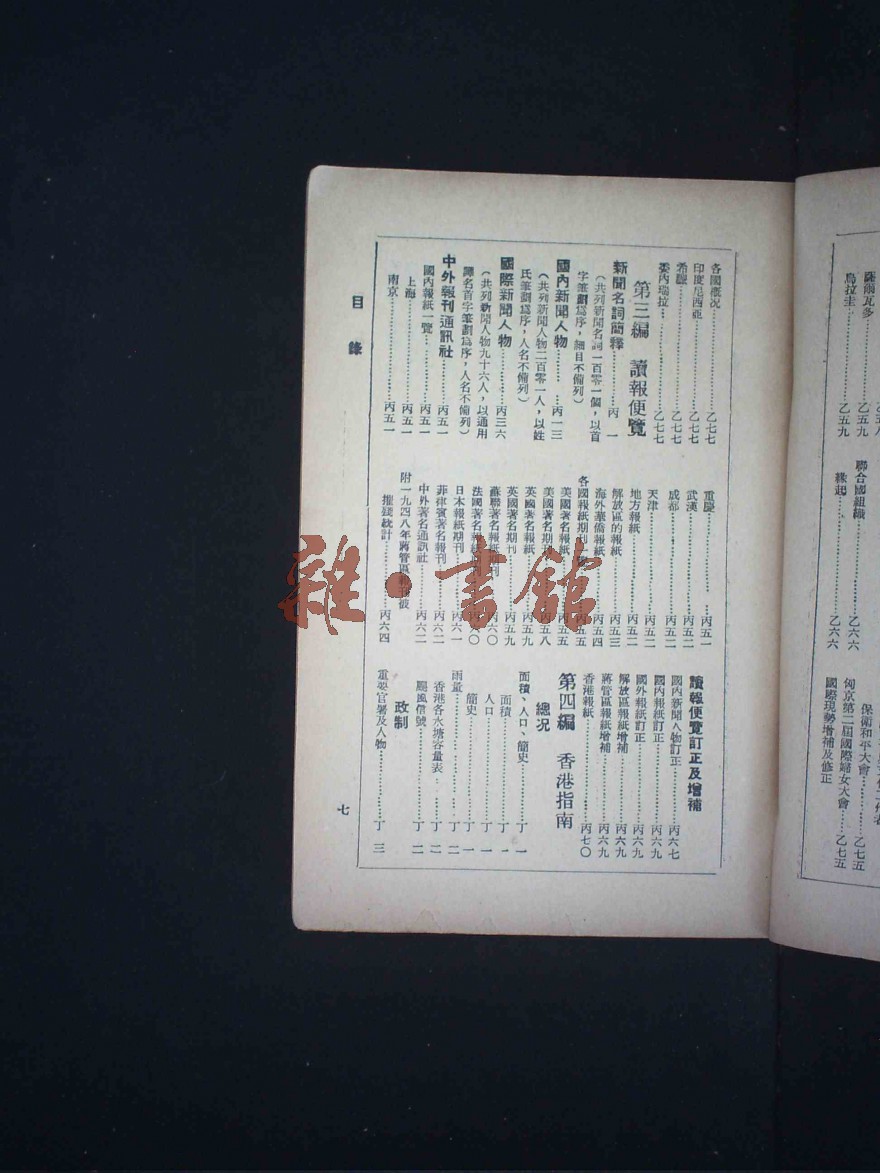 薩爾瓦多
烏拉圭……乙五九
聯合國組織……乙六六
緣起……乙六六
保衛和平大會……乙七五
匈京第二屆國際婦女大會……乙七五
國際現勢增補及修正
各國概况……乙七七
印度尼西亞……乙七七
希臘……乙七七
委內瑞拉……乙七七
第三編 讀報便覽
新聞名詞簡釋……丙 一
(共列新聞名詞一百零一個,以首
字筆劃爲序,細目不備列)
國內新聞人物……丙一三
(共列新聞人物二百零一人,以姓
氏筆劃爲序,人名不備列)
國際新聞人物……丙三六
(共列新聞人物九十六人,以通用
譯名首字筆劃爲序,人名不備列)
中外報刊通訊社……丙五一
國內報紙一覽……丙五一
上海……丙五一
南京……丙五一
重慶……丙五一
武漢……丙五一
成都……丙五二
天津……丙五二
地方報紙……丙五二
解放區的報紙……丙五三
海外華僑報紙……丙五四
各國報紙期刊……丙五五
美國著名報紙……丙五五
美國著名期刊……丙五八
英國著名報紙……丙五九
英國著名期刊……丙五九
蘇聯著名報紙期刊……丙六〇
法國著名報紙期刊……丙六〇
日本報紙期刊……丙六一
菲律賓著名報刊……丙六二
中外著名通訊社……丙六二
附一九四八年蔣管區報刊被
摧殘統計……丙六四
讀報便覽訂正及增補
國內新聞人物訂正……丙六七
國內報紙訂正……丙六九
國外報紙訂正……丙六九
解放區報紙增補……丙六九
蔣管區報紙增補……丙六九
香港報紙……丙七〇
第四編 香港指南
總况
面積、人口、簡史……丁 一
面積……丁 一
人口……丁 一
簡史……丁 一
雨量……丁 二
香港各水塘容量表……丁 二
颶風信號……丁 二
政制
重要官署及人物……丁 三
目錄
七
雜·書館